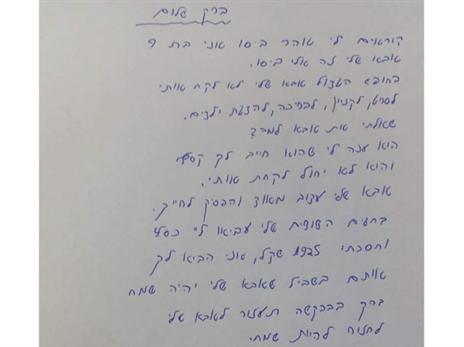 ברק שלום
קוראים לי אוהד ביסו אני בת 9
אבא שלי זה אלי ביסו.
בחופש הגדול אבא שלי לא לקח אותי
לסרט, לקניון, לבריכה, להצגת ילדים.
שאלתי את אבא למה?
הוא ענה לי שהוא חייב לך כסף
והוא לא יכול לקחת אותי.
אבא שלי עצוב מאוד והפסיק לחייך.
בחגים השונים שלי הביאו לי כסף
וחסכתי 1425 שקל, אני הביא לך
אותם בשביל שאבא שלי יהיה שמח
ברק בבקשה תעזור לאבא שלי
לחזור להיות שמח.